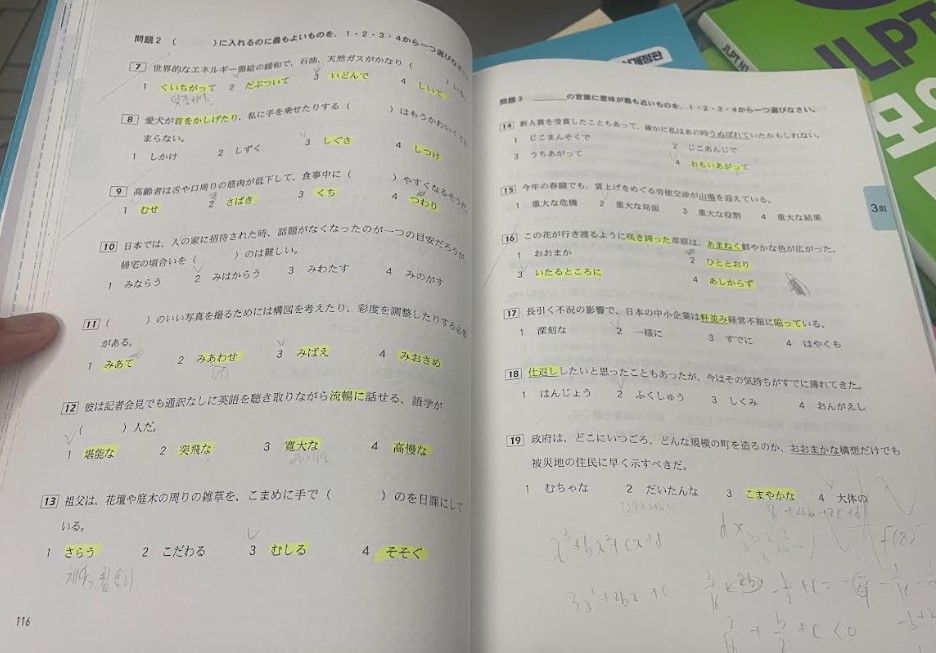 問題2 （ ）に入れるのに最もよいものを、1・2・3・4から一つ選びなさい。
7 世界的なエネルギー需給の緩和で、石油、天然ガスがかなり（ ）いる。
1 くいちがって 2 だぶついて 3 いどんで 4 しいて
8 愛犬が首をかしげたり、私に手を乗せたりする（ ）はもうかわいくて
まらない。
1 しかけ 2 しずく 3 しぐさ 4 しつけ
9 高齢者は舌や口周りの筋肉が低下して、食事中に（ ）やすくなるそうだ
1 むせ 2 さばき 3 くち 4 つわり
10 日本では、人の家に招待された時、話題がなくなったのが一つの目安だろうが
帰宅の頃合いを（ ）のは難しい。
1 みならう 2 みはからう 3 みわたす 4 みのがす
11 （ ）のいい写真を撮るためには構図を考えたり、彩度を調整したりする必要
がある。
1 みあて 2 みあわせ 3 みばえ 4 みおさめ
12 彼は記者会見でも通訳なしに英語を聴き取りながら流暢に話せる、語学が
（ ）人だ。
1 堪能な 2 突飛な 3 寛大な 4 高慢な
13 祖父は、花壇や庭木の周りの雑草を、こまめに手で（ ）のを日課にして
いる。
1 さらう 2 こだわる 3 むしる 4 そそぐ
116
問題3 の言葉に意味が最も近いものを、1・2・3・4から一つ選びなさい。
14 新人賞を受賞したこともあって、確かに私はあの時うぬぼれていたかもしれない。
1 じこまんぞくで 2 じこあんじで
3 うちあがって 4 おもいあがって
15 今年の春闘でも、賃上げをめぐる労使交渉が山場を迎えている。
1 重大な危機 2 重大な局面 3 重大な役割 4 重大な結果
16 この花が行き渡るように咲き誇った草原は、あまねく鮮やかな色が広がった。
1 おおまか 2 ひととおり
3 いたるところに 4 あしからず
17 長引く不況の影響で、日本の中小企業は軒並み経営不振に陥っている。
1 深刻な 2 一様に 3 すでに 4 はやくも
18 仕返ししたいと思ったこともあったが、今はその気持がすでに薄れてきた。
1 はんじょう 2 ふくしゅう 3 しくみ 4 おんがえし
19 政府は、どこにいつごろ、どんな規模の町を造るのか、おおまかな構想だけでも
被災地の住民に早く示すべきだ。
1 むちゃな 2 だいたんな 3 こまやかな 4 大体の
f(8)
3回
JLPT N1
JLPT
모의